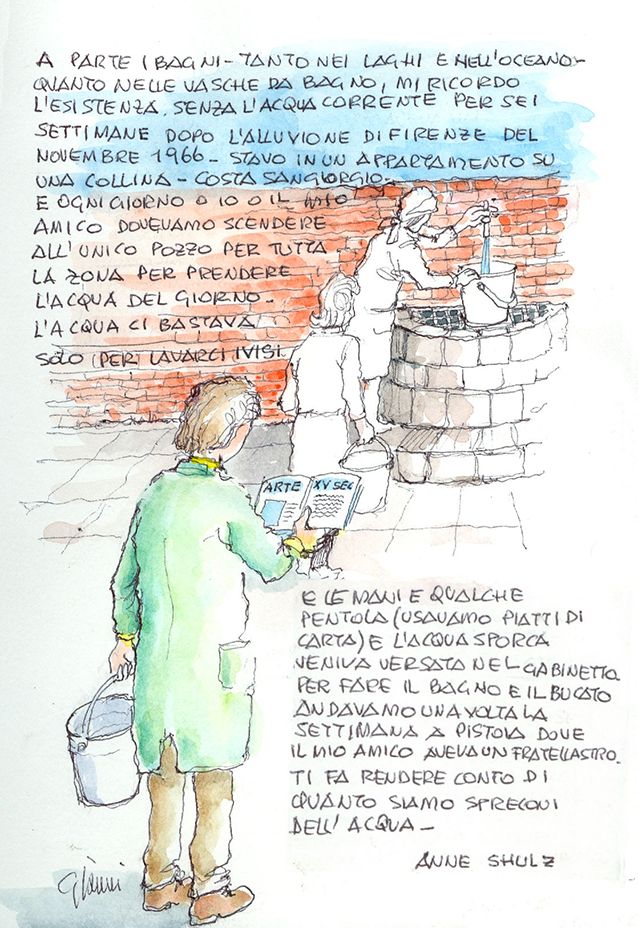 A PARTE I BAGNI - TANTO NEI LAGHI E NELL'OCEANO -
QUANTO NELLE VASCHE DA BAGNO, MI RICORDO
L'ESISTENZA. SENZA L'ACQUA CORRENTE PER SEI
SETTIMANE DOPO L'ALLUVIONE DI FIRENZE DEL
NOVEMBRE 1966 - STAVO IN UN APPARTAMENTO SU
UNA COLLINA - COSTA SANGIORGIO -
E OGNI GIORNO O IO O IL MIO
AMICO DOVEVAMO SCENDERE
ALL'UNICO POZZO PER TUTTA
LA ZONA PER PRENDERE
L'ACQUA DEL GIORNO -
L'ACQUA CI BASTAVA
SOLO PER LAVARCI I VISI
ARTE XV SEC
E LE MANI E QUALCHE
PENTOLA (USAVAMO PIATTI DI
CARTA) E L'ACQUA SPORCA
VENIVA VERSATA NEL GABINETTO.
PER FARE IL BAGNO E IL BUCATO
ANDAVAMO UNA VOLTA LA
SETTIMANA A PISTOIA DOVE
IL MIO AMICO AVEVA UN FRATELLASTRO.
TI FA RENDERE CONTO DI
QUANTO SIAMO SPRECONI
DELL'ACQUA -
ANNE SHULZ
Gianni